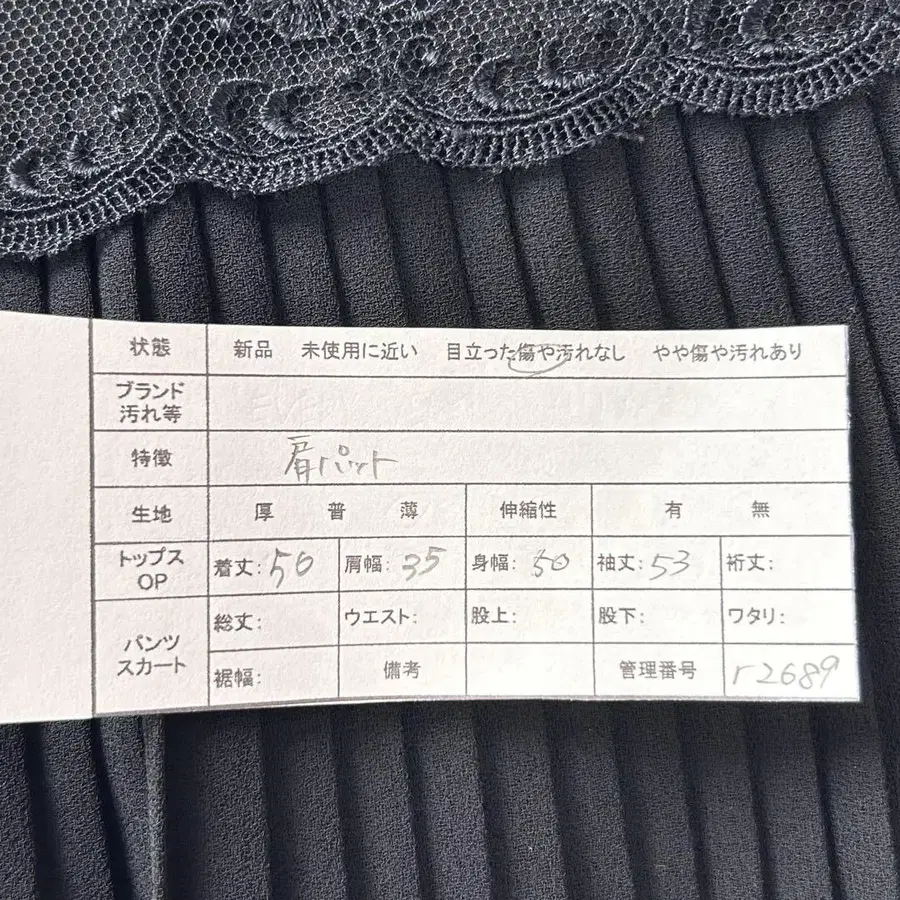 状態 新品 未使用に近い 目立った傷や汚れなし やや傷や汚れあり
ブランド
汚れ等
特徴 肩パット
生地 厚 普 薄 伸縮性 有 無
トップス
OP
着丈: 50 肩幅: 35 身幅: 50 袖丈: 53 裄丈:
パンツ
スカート
総丈: ウエスト: 股上: 股下: ワタリ:
裾幅: 備考 管理番号 r2689